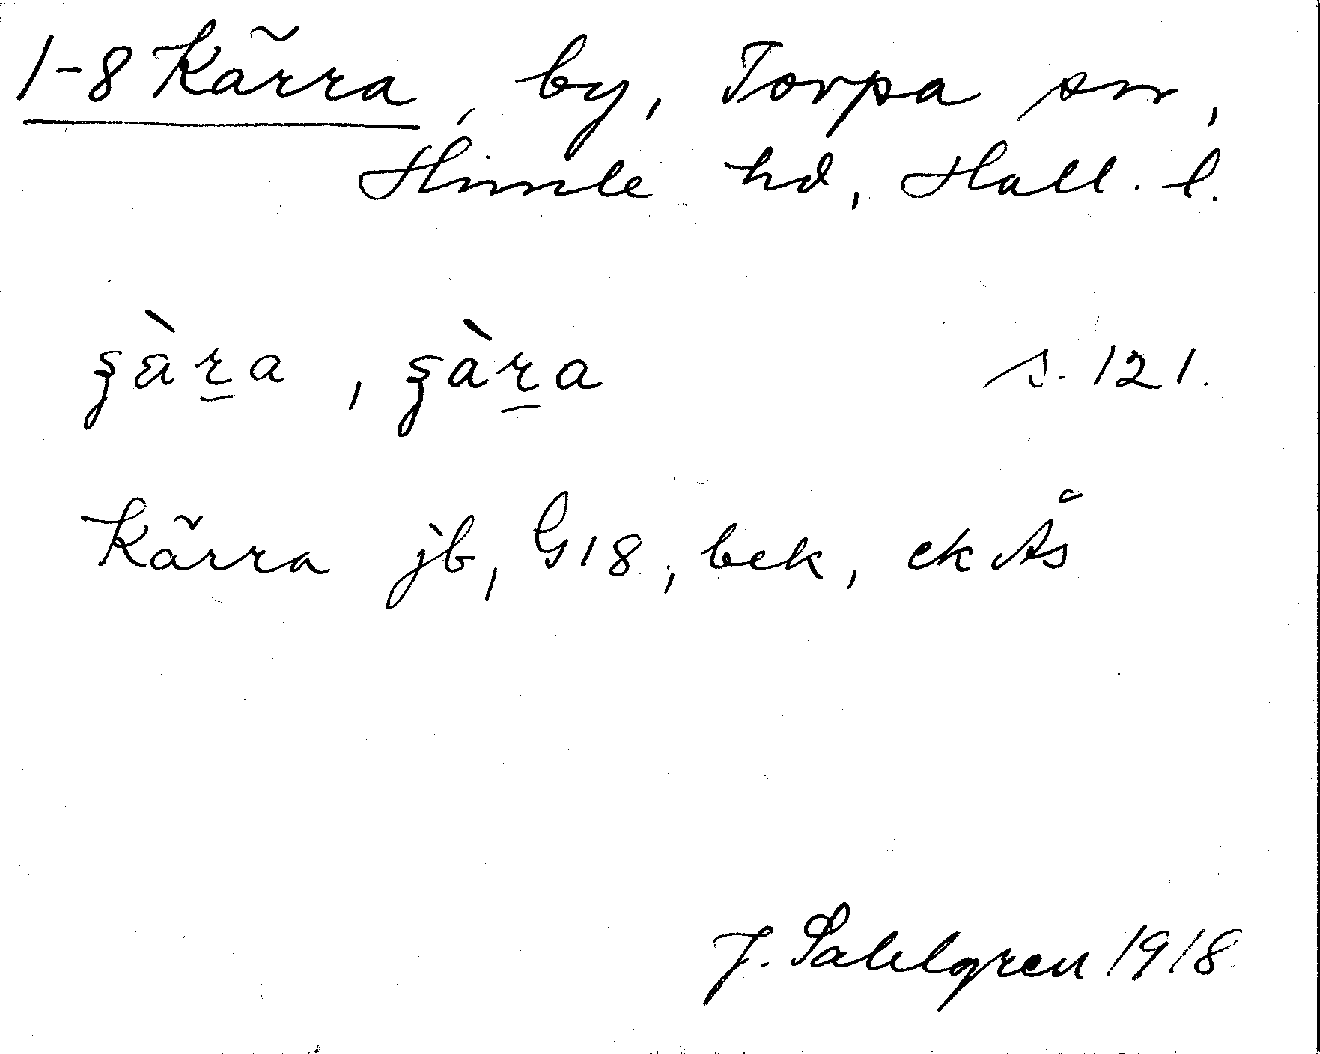 1-8 Kärra, by, Torpa sn,
Himle hd, Hall. l.
s. 121.
Kärra jb, G18, bek, ek Ås
J. Sahlgren 1918